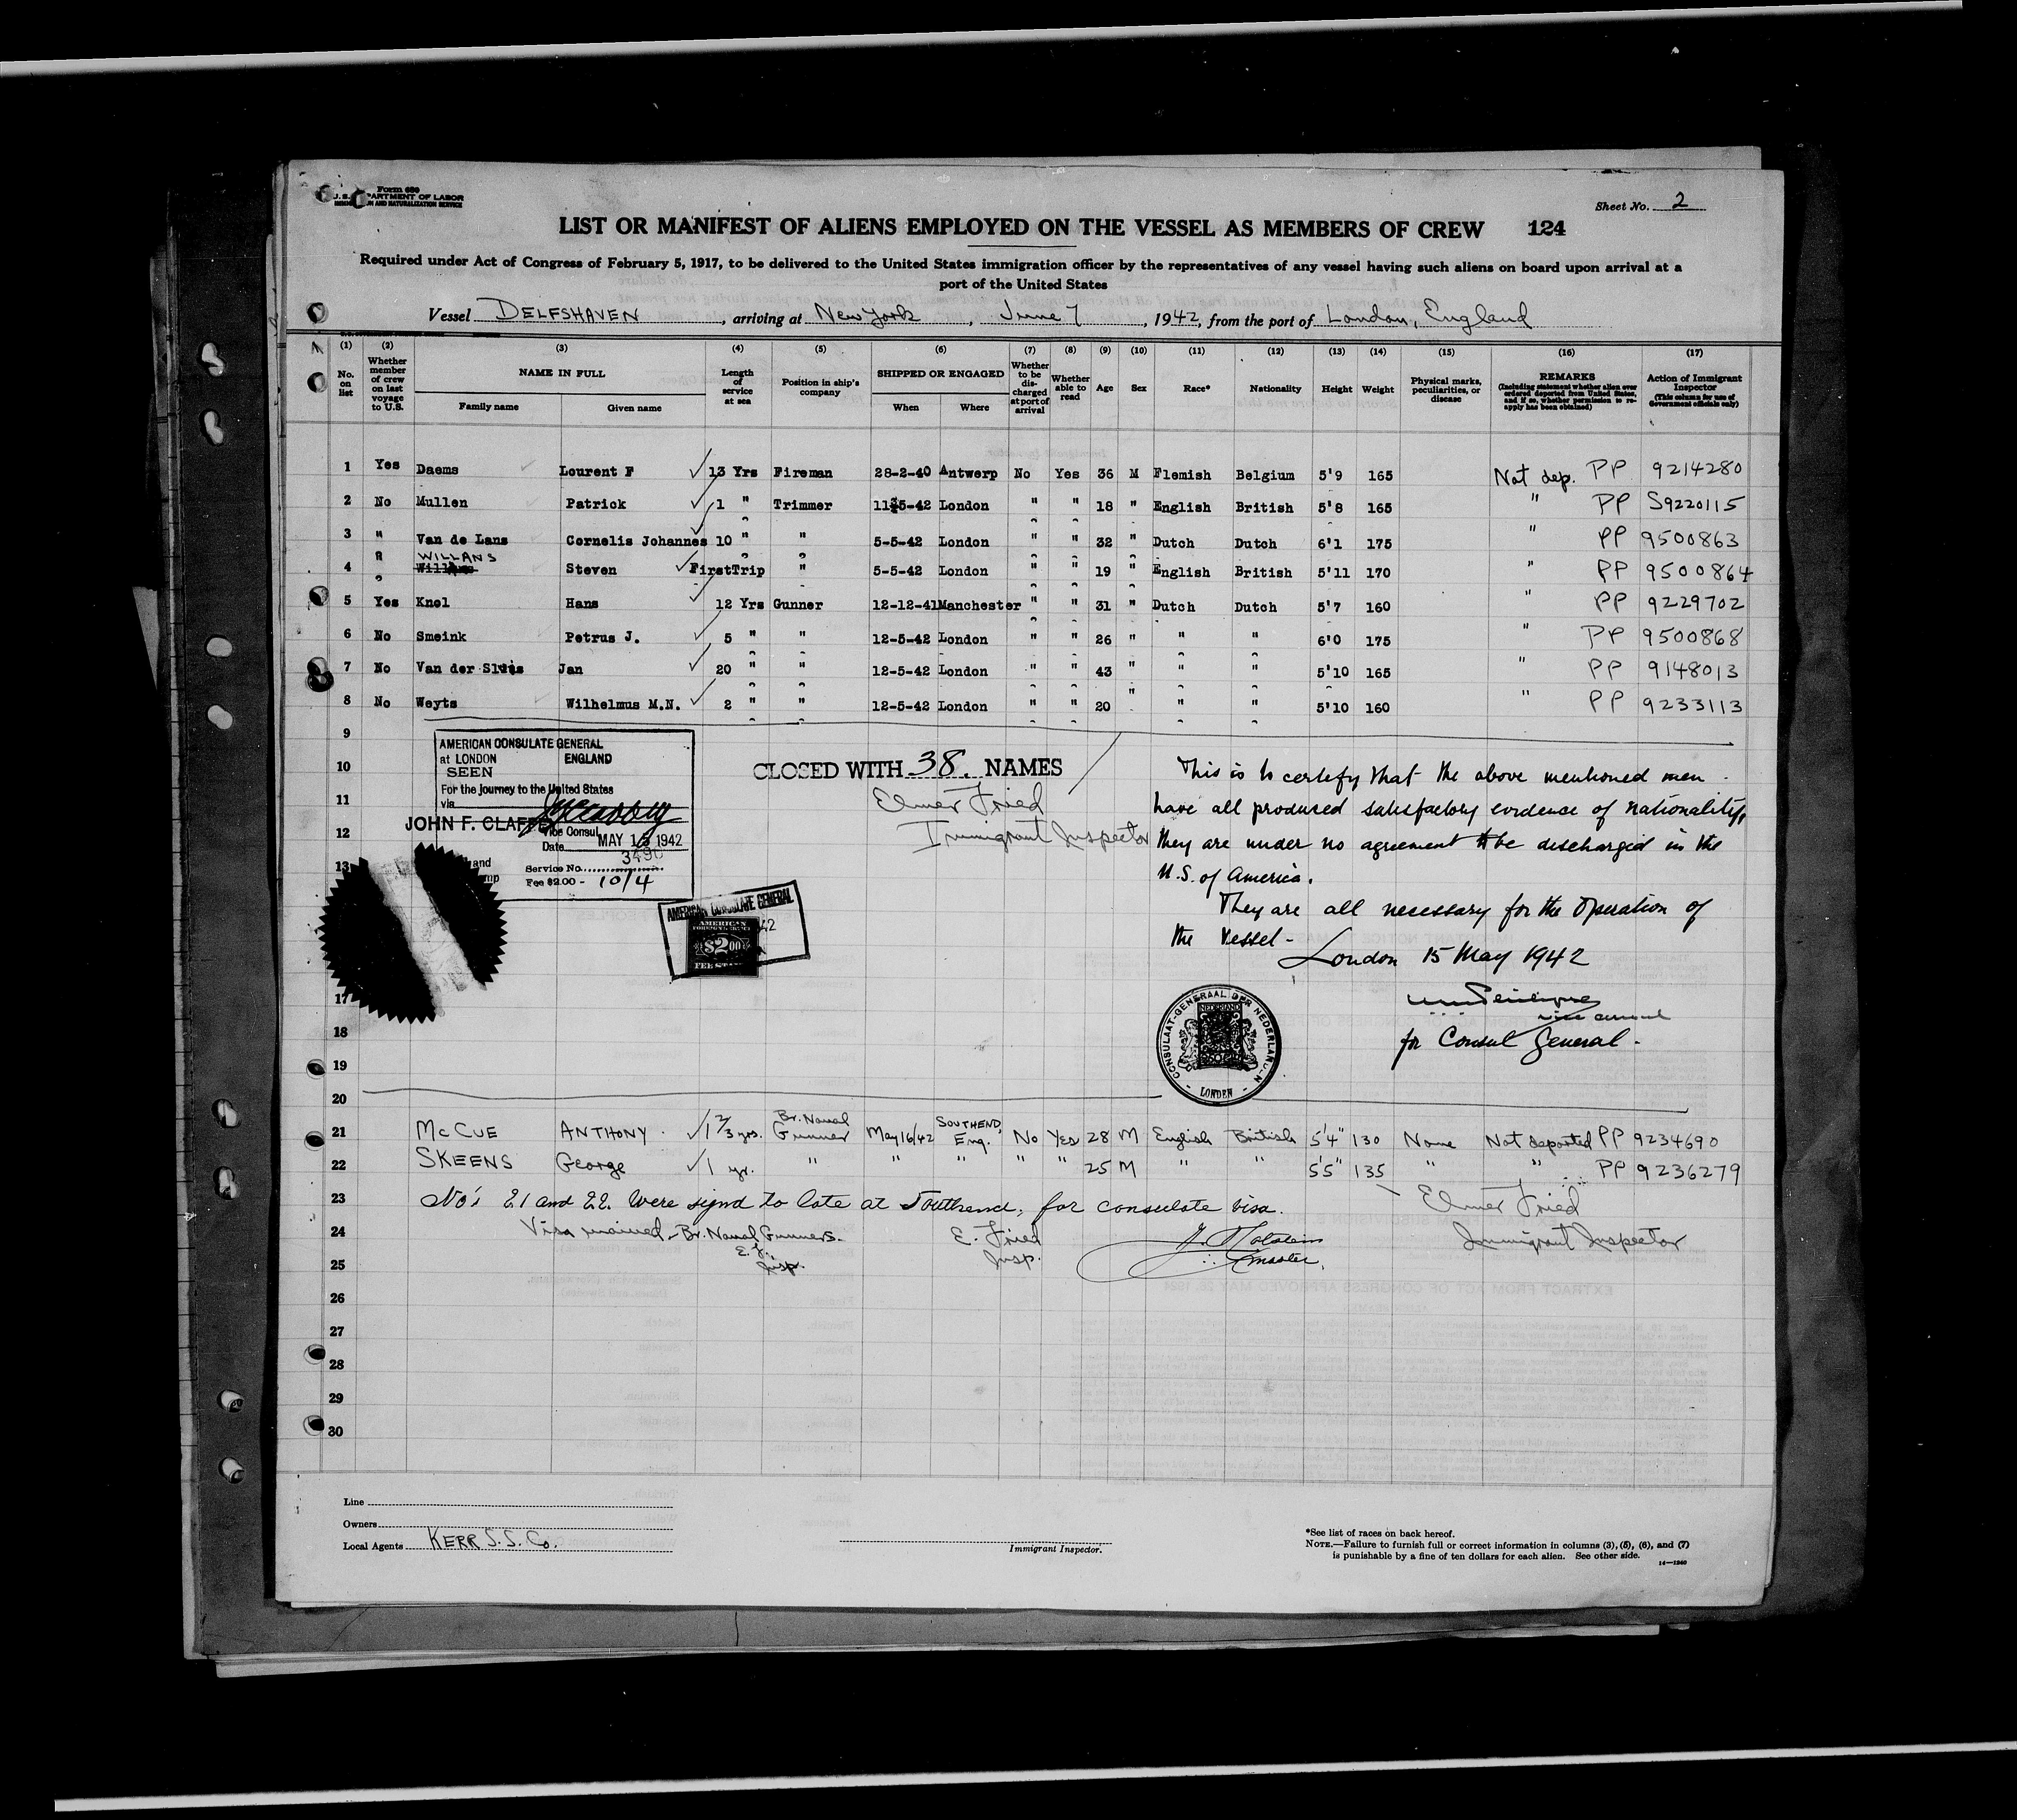 Form 680
U. S. DEPARTMENT OF LABOR
IMMIGRATION AND NATURALIZATION SERVICE
Sheet No. 2
LIST OR MANIFEST OF ALIENS EMPLOYED ON THE VESSEL AS MEMBERS OF CREW 124
Required under Act of Congress of February 5, 1917, to be delivered to the United States immigration officer by the representatives of any vessel having such aliens on board upon arrival at a
port of the United States
Vessel DELFSHAVEN, arriving at New York, June 7, 1942, from the port of London, England
(1) (2) (3) (4) (5) (6) (7) (8) (9) (10) (11) (12) (13) (14) (15) (16) (17)
No. on list Whether member of crew on last voyage to U.S. NAME IN FULL Family name Given name Length of service at sea Position in ship's company SHIPPED OR ENGAGED When Where Whether to be discharged at port of arrival Whether able to read Age Sex Race* Nationality Height Weight Physical marks, peculiarities, or disease REMARKS (Including statement whether alien ever ordered deported from United States, and if so, whether permission to re-apply has been obtained) Action of Immigrant Inspector (This column for use of Government officials only)
1 Yes Daems Lourent F 13 Yrs Fireman 28-2-40 Antwerp No Yes 36 M Flemish Belgium 5'9 165 Not dep. PP 9214280
2 No Mullen Patrick 1 " Trimmer 11-5-42 London " " 18 " English British 5'8 165 " PP S9220115
3 " Van de Lans Cornelis Johannes 10 " " 5-5-42 London " " 32 " Dutch Dutch 6'1 175 " PP 9500863
WILLANS
4 " Steven FirstTrip " 5-5-42 London " " 19 " English British 5'11 170 " PP 9500864
5 Yes Knel Hans 12 Yrs Gunner 12-12-41 Manchester " " 31 " Dutch Dutch 5'7 160 " PP 9229702
6 No Smeink Petrus J. 5 " " 12-5-42 London " " 26 " " " 6'0 175 " PP 9500868
7 No Van der Sluis Jan 20 " " 12-5-42 London " " 43 " " " 5'10 165 " PP 9148013
8 No Weyts Wilhelmus M.N. 2 " " 12-5-42 London " " 20 " " " 5'10 160 " PP 9233113
9
10
11
12
13
17
18
19
20
AMERICAN CONSULATE GENERAL
at LONDON ENGLAND
SEEN
For the journey to the United States
via
JOHN F. CLAFFEY
Vice Consul
Date MAY 15 1942
Service No. 3490
Fee $2.00 - 10/4
AMERICAN CONSULATE GENERAL
AMERICAN
$2.00
FEE STAMP
CLOSED WITH 38. NAMES
Elmer Fried
Immigrant Inspector
This is to certify that the above mentioned men
have all produced satisfactory evidence of nationality,
they are under no agreement to be discharged in the
U.S. of America.
They are all necessary for the operation of
the Vessel -
London 15 May 1942
vice consul
for Consul General -
CONSULAAT-GENERAAL DER NEDERLANDEN
- LONDEN -
21 McCUE ANTHONY 1 2/3 yrs. Br. Naval Gunner May 16/42 SOUTHEND, Eng. No Yes 28 M English British 5'4" 130 None Not deported PP 9234690
22 SKEENS George 1 yr. " " " " " 25 M " " 5'5" 135 " " PP 9236279
23 No's 21 and 22. Were signd to late at Southend, for consulate visa.
Elmer Fried
Immigrant Inspector
24 Visa waived - Br. Naval Gunners.
E. F.
Insp.
E. Fried
Insp.
master.
25
26
27
28
29
30
Line
Owners
Local Agents KERR S.S. Co.
Immigrant Inspector.
*See list of races on back hereof.
NOTE.—Failure to furnish full or correct information in columns (3), (5), (6), and (7)
is punishable by a fine of ten dollars for each alien. See other side.
14—1240